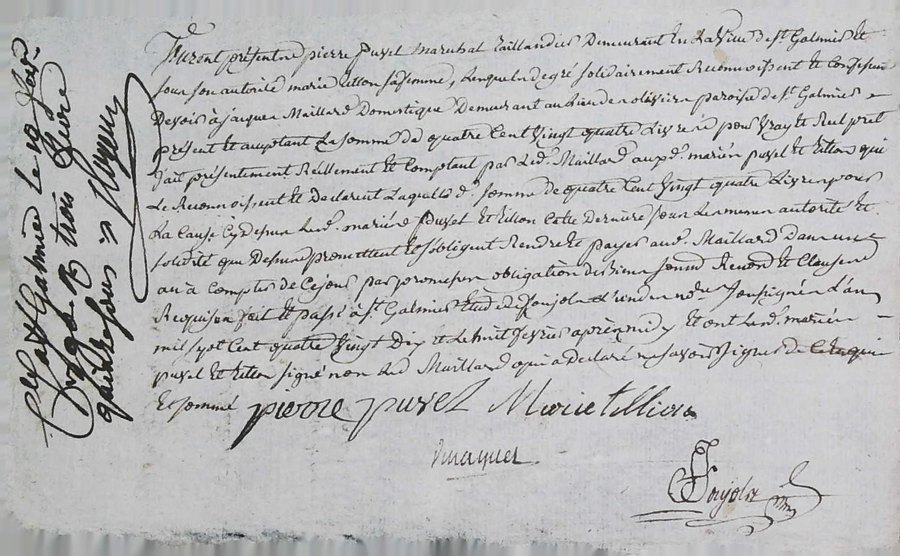 Furent présents pierre puzel Marechal taillandier Demeurant En la ville de St. Galmier Et
sous son autorité marie tillon sa femme, Lesquels de gré solidairement Reconnoissent et Confessent
Devoir à jacques Maillard Domestique Demeurant au lieu de paroisse de St. Galmier
présent et acceptant La somme de quatre Cent Vingt quatre Livres pour Vray et Reel pret
fait présentement Réellement et Comptant par Led. Maillard auxd. mariés puzel Et tillon qui
Le Reconnoissent et Declarent Laquelle de somme de quatre Cent Vingt quatre Livres pour
La Cause Cy dessus Lesd. mariés puzel Et tillon Cette Derniere sous La meme autorité Et
solidité que Dessus promettent et s'obligent Rendre Et payer aud. Maillard Dans un
an à Compter de Ce jour par promesse obligation de Biens Renond. Et Clauses
Requises fait Et passé à St. Galmier Etude de Ponjola notre. soussigné L'an
mil sept Cent quatre Vingt Dix et Le huit fevrier après midy Et ont Lesd. mariés
puzel Et tillon signé non Led. Maillard qui a declaré ne savoir signer de Ce Enquis
Et sommé pierre puzel Marie tillion
Ponjola
Clé à St Galmier le 19
1790 R trois livre
quinze sous